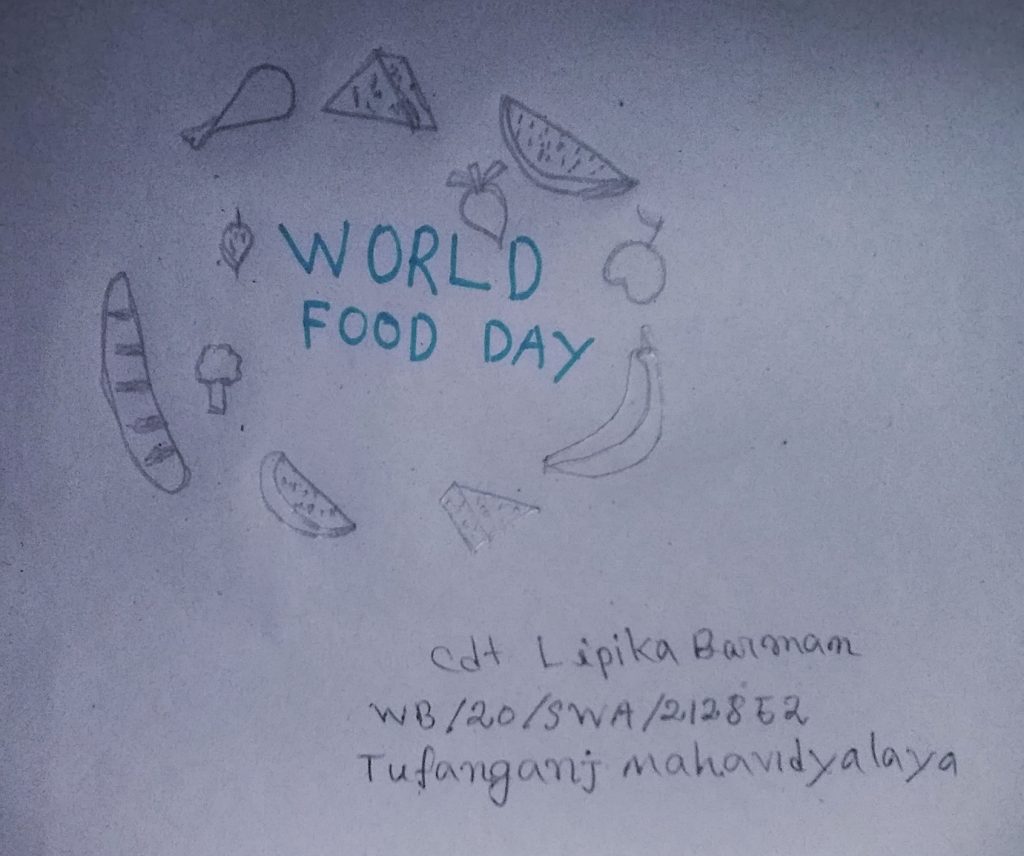 WORLD
FOOD DAY
Cdt Lipika Barman
WB/20/SWA/212852
Tufanganj mahavidyalaya